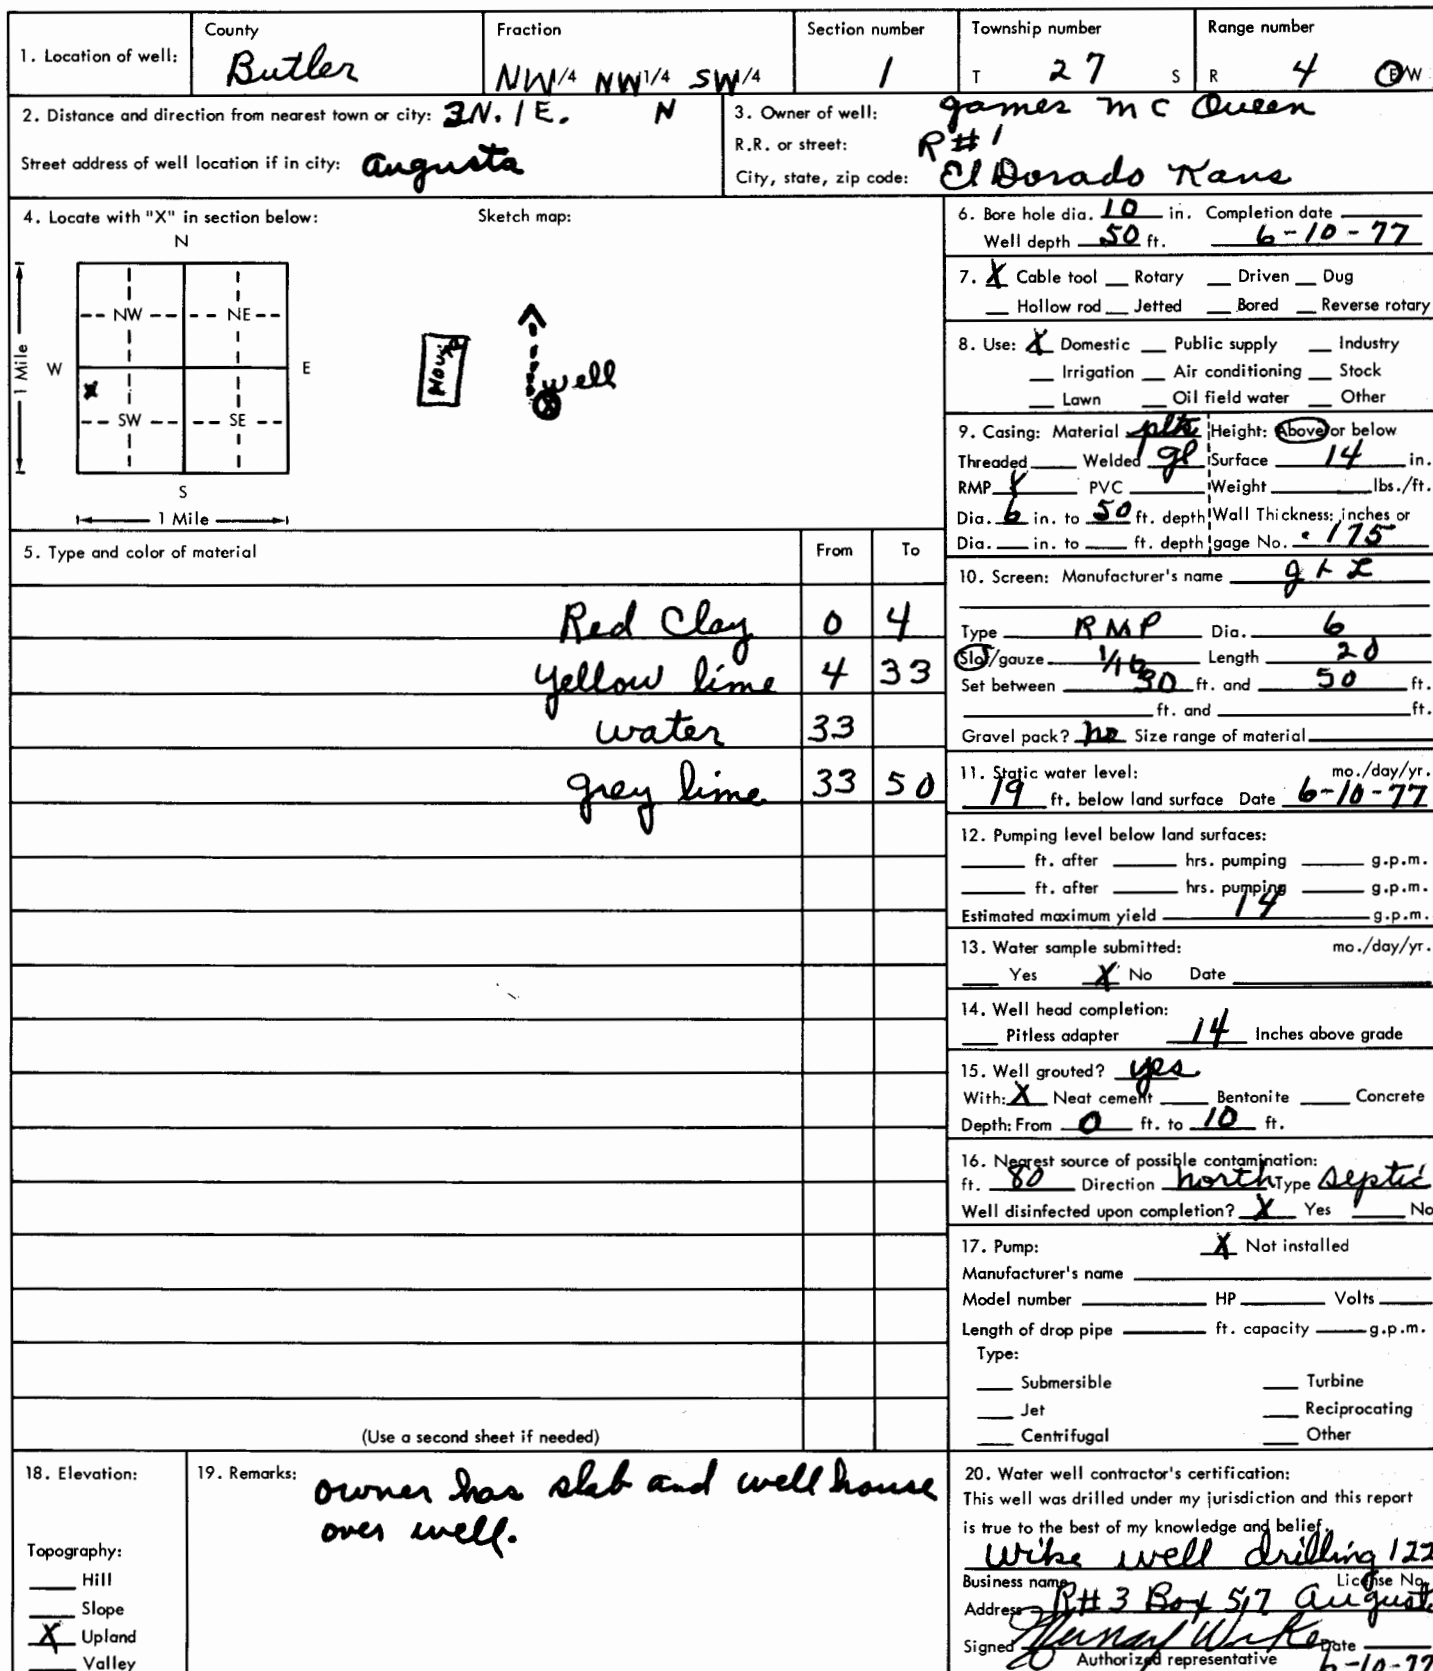 1. Location of well: County Butler Fraction NW1/4 NW1/4 SW1/4 Section number 1 Township number T 27 S Range number R 4 E/W
2. Distance and direction from nearest town or city: 3N. 1E. N
Street address of well location if in city: Augusta
3. Owner of well: James McQueen
R.R. or street: R#1
City, state, zip code: El Dorado Kans
4. Locate with "X" in section below: Sketch map:
N
NW NE
W E
1 Mile
X
SW SE
S
1 Mile
House
well
5. Type and color of material From To
Red Clay 0 4
yellow lime 4 33
water 33
grey lime 33 50
(Use a second sheet if needed)
6. Bore hole dia. 10 in. Completion date
Well depth 50 ft. 6-10-77
7. X Cable tool Rotary Driven Dug
Hollow rod Jetted Bored Reverse rotary
8. Use: X Domestic Public supply Industry
Irrigation Air conditioning Stock
Lawn Oil field water Other
9. Casing: Material plts Height: Above or below
Threaded Welded gl Surface 14 in.
RMP X PVC Weight lbs./ft.
Dia. 6 in. to 50 ft. depth Wall Thickness: inches or
Dia. in. to ft. depth gage No. .175
10. Screen: Manufacturer's name
Type RMP Dia. 6
Slot/gauze 1/16 Length 20
Set between 30 ft. and 50 ft.
ft. and ft.
Gravel pack? no Size range of material
11. Static water level: mo./day/yr.
19 ft. below land surface Date 6-10-77
12. Pumping level below land surfaces:
ft. after hrs. pumping g.p.m.
ft. after hrs. pumping g.p.m.
Estimated maximum yield 14 g.p.m.
13. Water sample submitted: mo./day/yr.
Yes X No Date
14. Well head completion:
Pitless adapter 14 Inches above grade
15. Well grouted? yes
With: X Neat cement Bentonite Concrete
Depth: From 0 ft. to 10 ft.
16. Nearest source of possible contamination:
ft. 80 Direction north Type septic
Well disinfected upon completion? X Yes No
17. Pump: X Not installed
Manufacturer's name
Model number HP Volts
Length of drop pipe ft. capacity g.p.m.
Type:
Submersible Turbine
Jet Reciprocating
Centrifugal Other
18. Elevation:
Topography:
Hill
Slope
X Upland
Valley
19. Remarks: owner has slab and well house
over well.
20. Water well contractor's certification:
This well was drilled under my jurisdiction and this report
is true to the best of my knowledge and belief.
Wike well drilling 122
Business name License No.
Address R#3 Box 517 Augusta
Signed Wike Date
Authorized representative 6-10-77